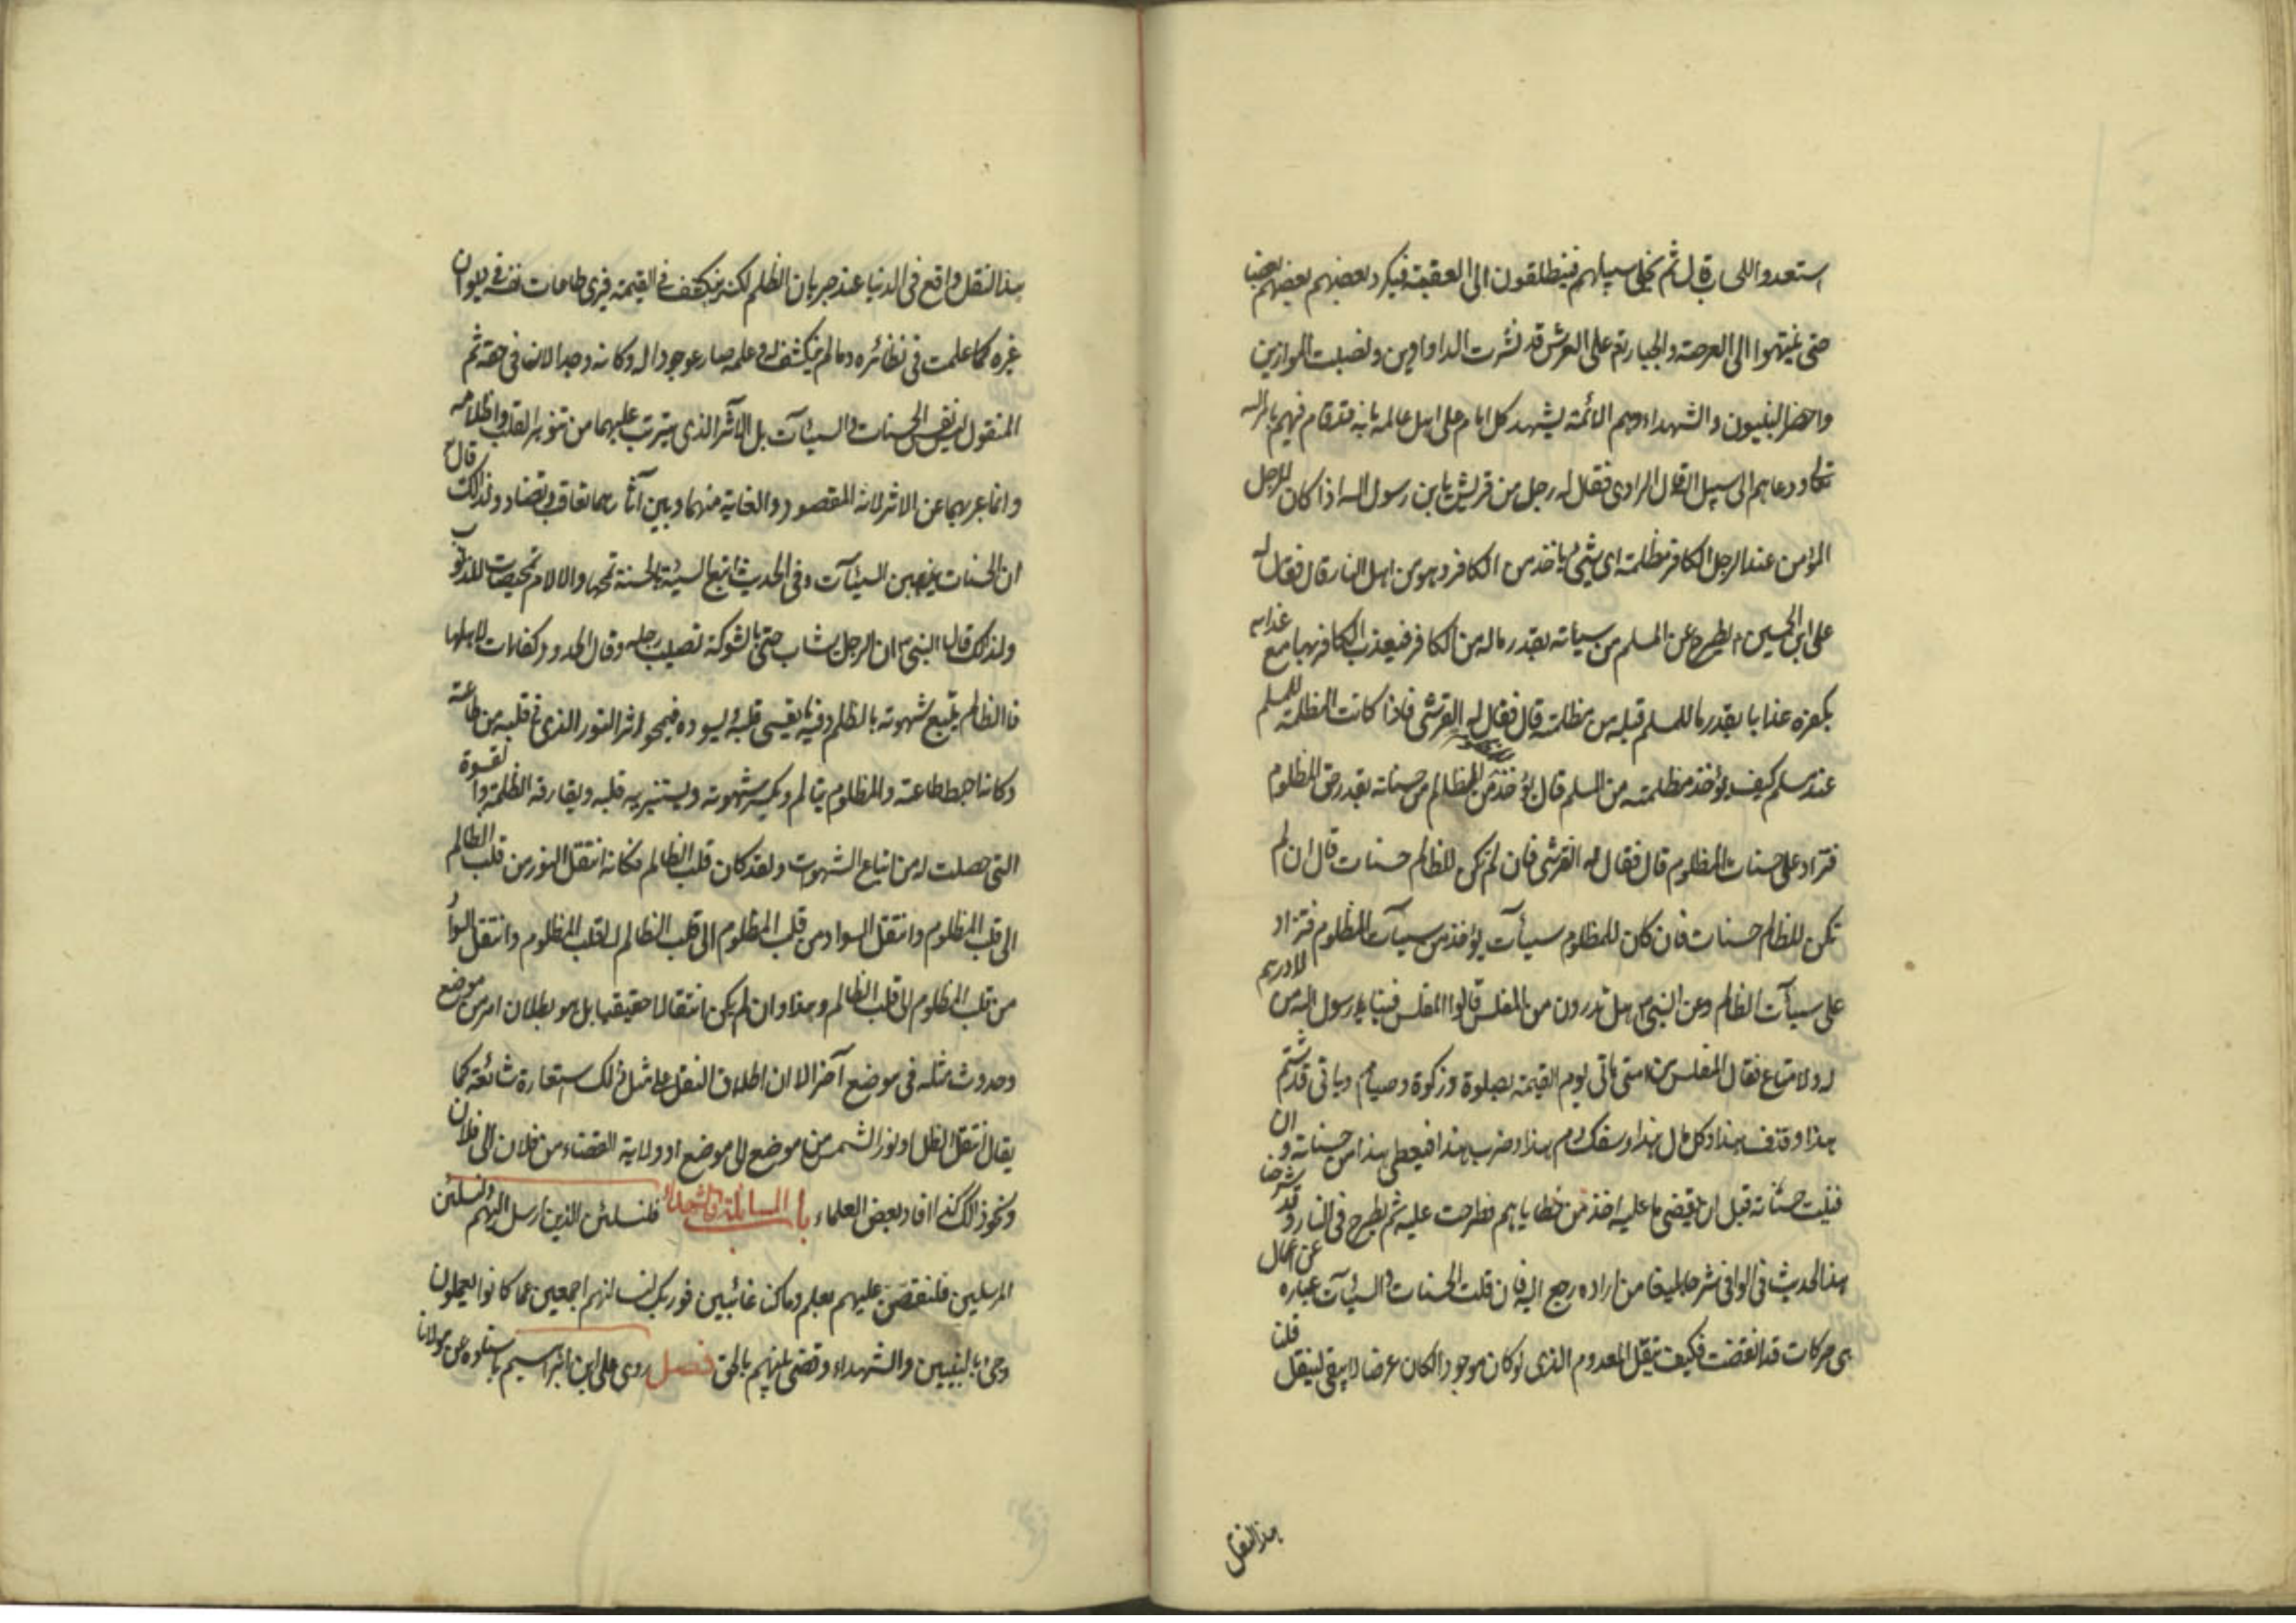 استعدوا للحساب قال ثم يخلى سبيلهم فينطلقون الى العقبة فيكرد بعضهم بعضهم بعضا
حتى ينتهوا الى العرصة والجبار تع على العرش قد نشرت الدواوين ونصبت الموازين
واحضر النبيون والشهداء وهم الائمة يشهد كل امام على اهل عالمه بانه قد قام فيهم بامر الله
تعالى ودعاهم الى سبيل الله قال الراوى فقال له رجل من قريش يابن رسول الله اذا كان للرجل
المؤمن عند الرجل الكافر مظلمة اى شىء ياخذ من الكافر وهو من اهل النار قال فقال له
على ابن الحسين ع يطرح عن المسلم من سيئاته بقدر ماله من الكافر فيعذب الكافر بها مع عذابه
بكفره عذابا بقدر ما للمسلم قبله من مظلمة قال فقال له القرشى فاذا كانت المظلمة للمسلم
عند مسلم كيف يؤخذ مظلمته من المسلم قال يؤخذ من الظالم من حسناته بقدر حق المظلوم
فتزاد على حسنات المظلوم قال فقال له القرشى فان لم تكن للظالم حسنات قال ان لم
تكن للظالم حسنات فان كان للمظلوم سيئات يؤخذ من سيئات المظلوم فتزاد
على سيئات الظالم وعن النبى ص هل تدرون من المفلس قالوا المفلس فينا يا رسول الله من لا درهم
له ولا متاع فقال المفلس من امتى ياتى يوم القيمة بصلوة وزكوة وصيام وياتى قد شتم
هذا وقذف هذا واكل مال هذا وسفك دم هذا وضرب هذا فيعطى هذا من حسناته وان
فنيت حسناته قبل ان يقضى ما عليه اخذ من خطاياهم فطرحت عليه ثم يطرح فى النار وقد شرحنا
هذا الحديث فى الوافى شرحا بليغا من اراده رجع اليه فان قلت الحسنات والسيئات عبارة عن اعمال
هى حركات قد انقضت فكيف ينقل المعدوم الذى لو كان موجودا لكان عرضا لا يبقى لينقل قلت
هذا النقل
هذا النقل واقع فى الدنيا عند جريان الظلم لكنه ينكشف فى القيمة فيرى طاعات نفسه فى ديوان
غيره كما علمت فى نظائره وما لم ينكشف له علمه صار موجودا له وكانه وجد الان فى حقه ثم
المنقول ليس نفس الحسنات والسيئات بل الاثر الذى يترتب عليهما من تنوير القلب واظلامه
وانما عبر بهما عن الاثر لانه المقصود والغاية منهما وبين آثارهما تعاقب وتضاد ولذلك قال تع
ان الحسنات يذهبن السيئات وفى الحديث اتبع السيئة الحسنة تمحها والالام تمحيصات للذنوب
ولذلك قال النبى ص ان الرجل يثاب حتى بالشوكة تصيب رجله وقال الحدود كفارات لاهلها
فالظالم يتبع شهوته بالظلم وفيه ما يقسى قلبه ويسوده فيمحو اثر النور الذى فى قلبه من طاعته
وكانما احبط طاعته والمظلوم يتالم ويكسر شهوته ويستنير به قلبه ويفارقه الظلمة والقسوة
التى حصلت له من اتباع الشهوات ولقد كان قلب الظالم فكانه انتقل النور من قلب الظالم
الى قلب المظلوم وانتقل السواد من قلب المظلوم الى قلب الظالم لقلب المظلوم وانتقل السواد
من قلب المظلوم الى قلب الظالم وهذا وان لم يكن انتقالا حقيقيا بل هو بطلان امر من موضع
وحدوث مثله فى موضع آخر الا ان اطلاق النقل على مثل ذلك استعارة شائعة كما
يقال انتقل الظل او نور الشمس من موضع الى موضع او ولاية القضاء من فلان الى فلان
ونحو ذلك كذا افاد بعض العلماء باب المسائلة فلنسئلن الذين ارسل اليهم ولنسئلن
المرسلين فلنقصن عليهم بعلم وما كنا غائبين فوربك لنسئلنهم اجمعين عما كانوا يعملون
وجىء بالنبيين والشهداء وقضى بينهم بالحق فصل روى على ابن ابراهيم باسناده عن مولانا